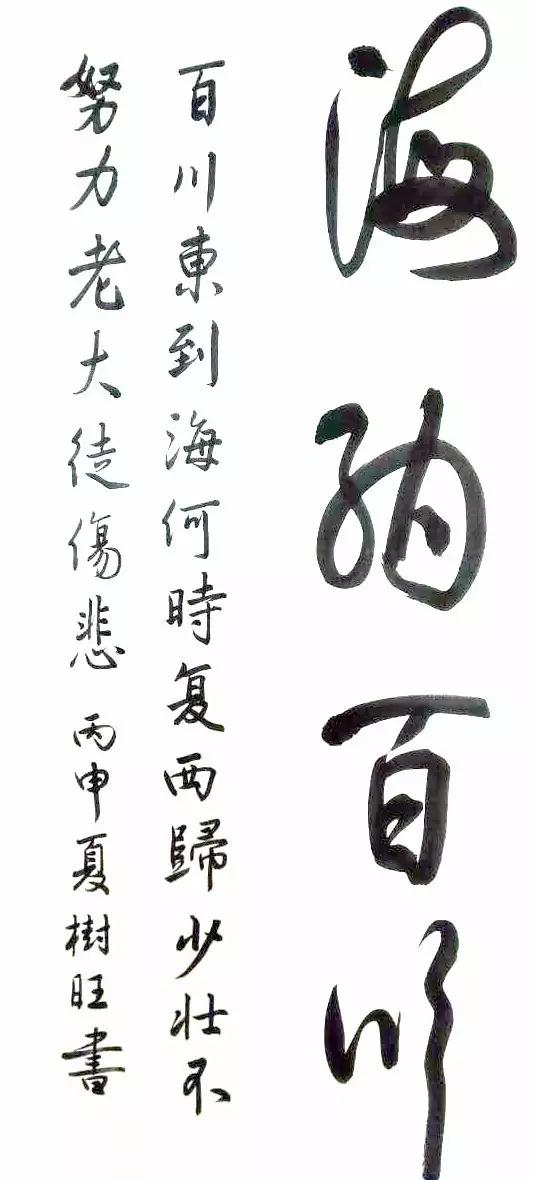 海纳百川
百川東到海何時复西歸少壮不
努力老大徒傷悲 丙申夏樹旺書